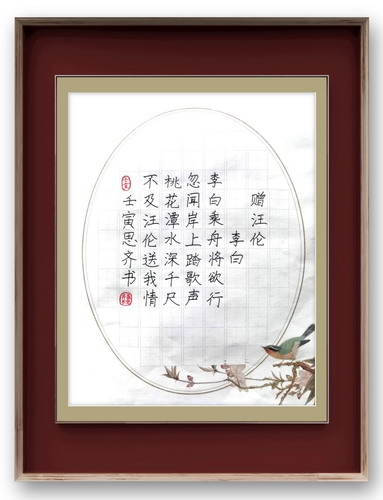 赠汪伦
李白
李白乘舟将欲行
忽闻岸上踏歌声
桃花潭水深千尺
不及汪伦送我情
壬寅思齐书